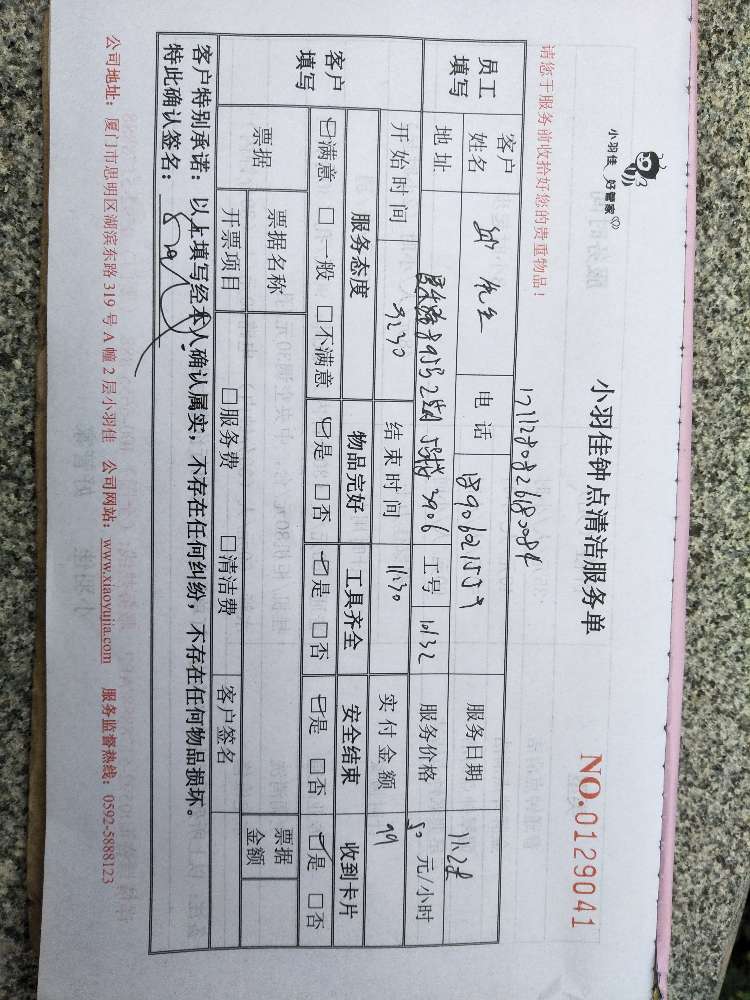 小羽佳 好管家
小羽佳钟点清洁服务单
NO.0129041
请您于服务前收拾好您的贵重物品!
员工填写
客户姓名 先生 电话 服务日期 11.28
地址 2期 3906 工号 10132 服务价格 50 元/小时
开始时间 9:30 结束时间 11:30 实付金额 99
客户填写
服务态度 物品完好 工具齐全 安全结束 收到卡片
☑满意 □一般 □不满意 ☑是 □否 ☑是 □否 ☑是 □否 ☑是 □否
票据 票据名称 票据金额
开票项目 □服务费 □清洁费 客户签名
客户特别承诺:以上填写经本人确认属实,不存在任何纠纷,不存在任何物品损坏。
特此确认签名:
公司地址:厦门市思明区湖滨东路 319 号 A 幢 2 层小羽佳 公司网站:www.xiaoyujia.com 服务监督热线:0592-5888123